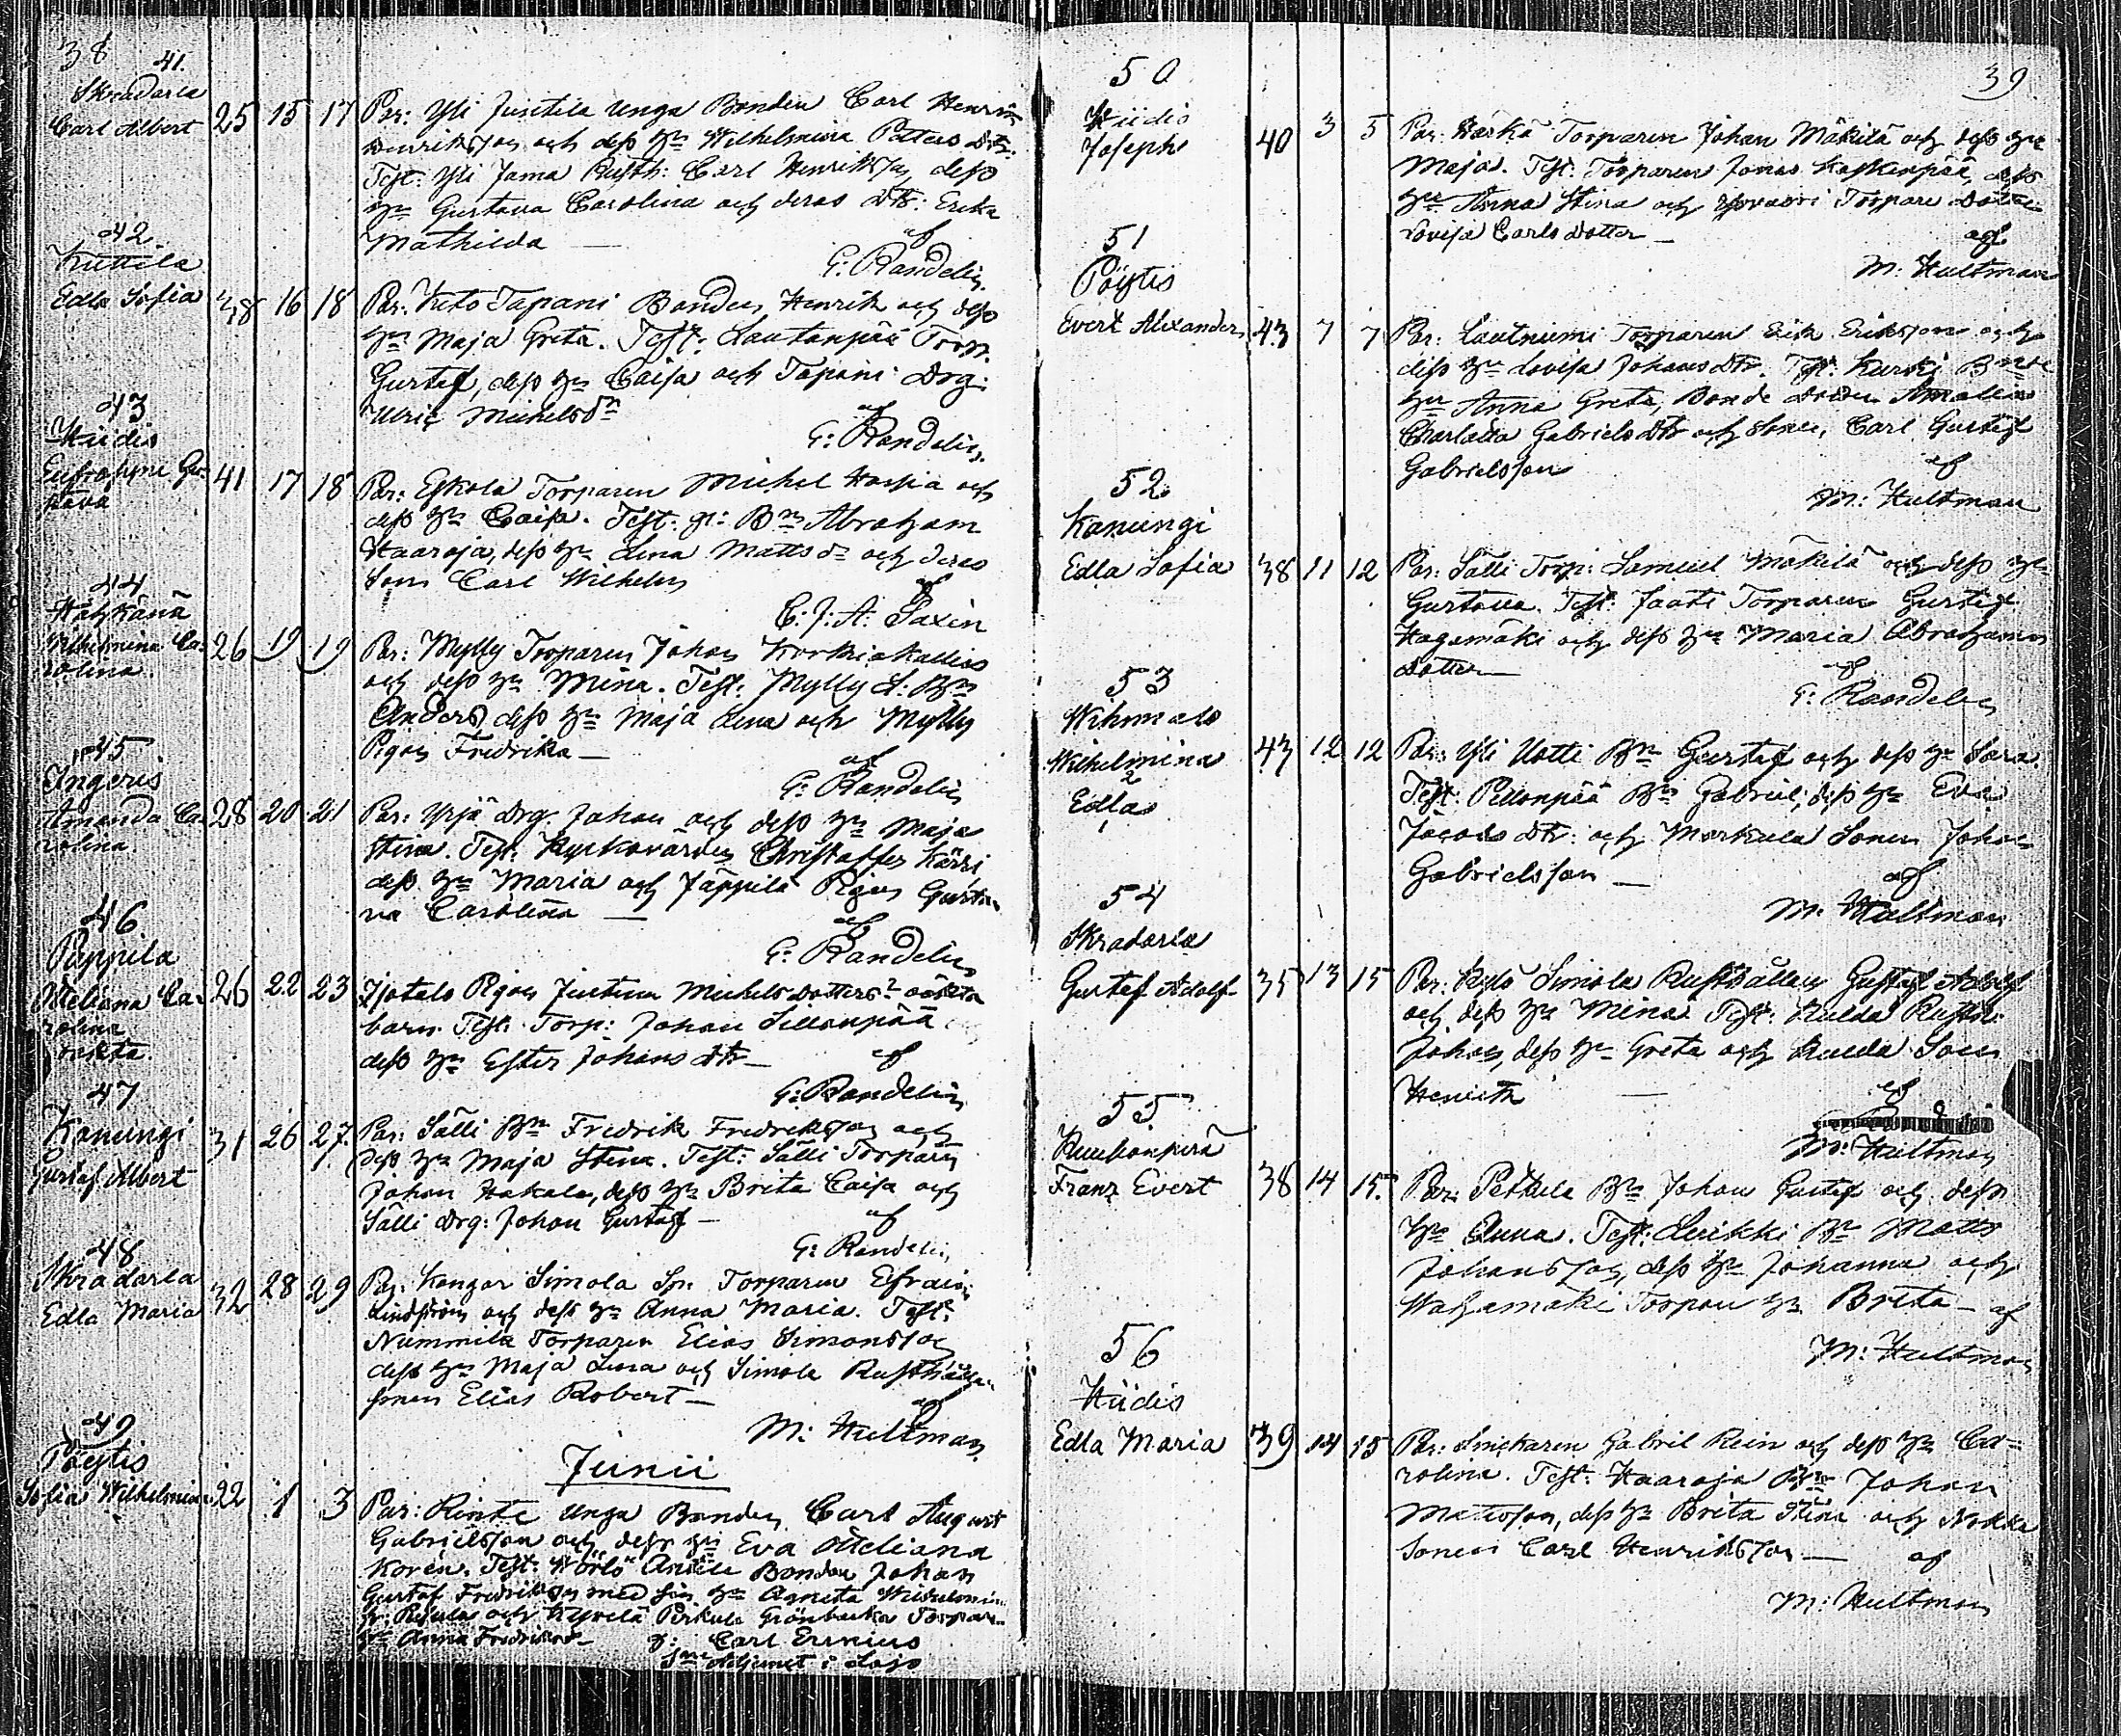 38
41.
Skradarla
Carl Albert 25 15 17 Par: Yli Juntila unga Bonden Carl Henrik
Henriksson och dess hu Wilhelmina Petters Dtr.
Test: Yli Jama Rusth: Carl Henriksson, dess
hu Gustava Carolina och deras Dtr: Erika
Mathilda — af
G: Randelin.
42.
Kuttila
Edla Sofia 38 16 18 Par. Keto Tapani Bonden Henrik och dess
hu Maja Greta. Test: Lautanpää Torp.
Gustaf, dess hu Caisa och Tapani Drg:
Ulric Michelsdn af
G: Randelin.
43
Hiidis
Eufrosyne Gu-
stava 41 17 18 Par: Eskola Torparen Michel Harja och
dess hu Caisa. Test: gr: Bn Abraham
Haaroja, dess hu Lena Mattsdr och deras
Son Carl Wilhelm af
C. J. A. Saxén
44
Hatzkänä
Wilhelmina Ca-
rolina. 26 19 19 Par: Mylly Torparen Johan Korkiakallio
och dess hu Mina. Test: Mylly L: Bn
Anders, dess hu Maja Lena och Mylly
Pigan Fredrika — af
G: Randelin
45
Ingeris
Amanda Ca-
rolina. 28 20 21 Par: Yrjä Drg. Johan och dess hu Maja
Stina. Test: Kyrkovärden Christoffer Kärri
dess hu Maria och Jäppilä Pigan Gusta-
va Carolina — af
G: Randelin
46
Peppila
Otteliana Ca-
rolina
oäkta. 26 22 23 Ijotals Pigan Justina Michelsdotters oäkta
barn. Test: Torp: Johan Sillanpää
dess hu Ester Johans Dtr — af
G: Randelin
47
Kanungi
Gustaf Albert 31 26 27 Par: Sälli Bn Fredrik Fredriksson och
dess hu Maja Stina. Test: Sälli Torparn
Johan Hakala, dess hu Brita Caisa och
Sälli Drg: Johan Gustaf — af
G: Randelin
48
Skradarla
Edla Maria 32 28 29 Par. Kangar Simola Sn. Torparen Efraim
Lindström och dess hu Anna Maria. Test:
Nummila Torparen Elias Simonsson
dess hu Maja Lena och Simola Rusthålla-
sonen Elias Robert — af
M: Hultman
Junii
49
Pöytis
Sofia Wilhelmina 22 1 3 Par: Rinte unga Bonden Carl August
Gabrielsson och dess hu Eva Otteliana
Korén. Test: Wörlö Anttila Bonden Johan
Gustaf Fredriksson med sin hu Agneta Wilhelmina
fr: och Kyrelä Perkula Grönbacka Torpare
hu Anna — g: Carl Ernnius
Adjunct i Lojo
39
50
Hiidis
Joseph 40 3 5 Par: Harka Torparen Johan Mäkilä och dess hu
Maja. Test: Torparen Jonas Koskenpää, dess
hu Anna Stina och Torpare Dottr
Lovisa Carls Dotter — af
M: Hultman
51
Pöytis
Evert Alexander 43 7 7 Par: Lautniemi Torparen Erik Eriksson och
dess hu Lovisa Johans Dtr. Test: Kurki Bnde
hu Anna Greta, Bonde Dottern Amalia
Charlotta Gabriels Dtr och Sonen, Carl Gustaf
Gabrielsson af
M: Hultman
52
Kanungi
Edla Sofia 38 11 12 Par: Sälli Torp: Samuel Mäkilä och dess hu
Gustava. Test: Jaati Torparen Gustaf
Hagamäki och dess hu Maria Abrahams
dotter — af
G: Randelin
53
Wihmalo
Wilhelmina
2
Edla
1
43 12 12 Par: Yli Uotti Bn Gustaf och dess hu Sara.
Test: Pellonpää Bn Gabriel, dess hu Eva
Jacobs Dtr: och Markula Sonen Johan
Gabrielsson — af
M: Hultman
54
Skradarla
Gustaf Adolf 35 13 15 Par: Simola Rusthållarn Gustaf Adolf
och dess hu Mina. Test: Kulda Rusth:
Johan, dess hu Greta och Kulda Son
Henrik — af
M: Hultman
55
Kuukanperä
Franz Evert 38 14 15 Par: Petkele Bn Johan Gustaf och dess
hu Anna. Test: Leikki Bn Matts
Johansson, dess hu Johanna och
Wahamäki Torpare hu Brita — af
M: Hultman
56
Hiidis
Edla Maria 39 14 15 Par: Snickaren Gabriel Rein och dess hu Ca-
rolina. Test: Haaroja Bn Johan
Mattsson, dess hu Brita Stina och Nokka
Sonen Carl Henriksson — af
M: Hultman